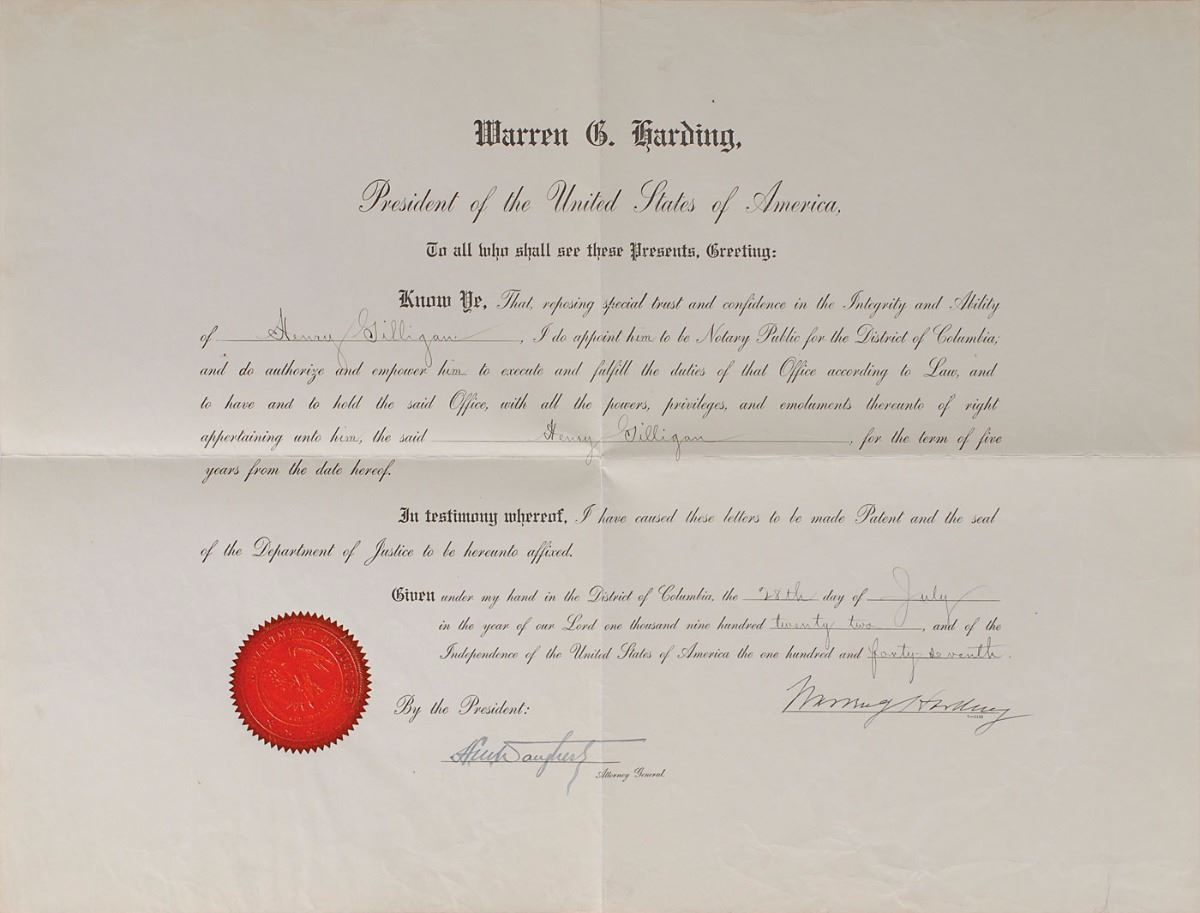 Warren G. Harding,
President of the United States of America,
To all who shall see these Presents, Greeting:
Know Ye, That, reposing special trust and confidence in the Integrity and Ability
of Henry Gilligan, I do appoint him to be Notary Public for the District of Columbia;
and do authorize and empower him to execute and fulfill the duties of that Office according to Law, and
to have and to hold the said Office, with all the powers, privileges, and emoluments thereunto of right
appertaining unto him, the said Henry Gilligan, for the term of five
years from the date hereof.
In testimony whereof, I have caused these letters to be made Patent and the seal
of the Department of Justice to be hereunto affixed.
Given under my hand in the District of Columbia, the 28th day of July
in the year of our Lord one thousand nine hundred twenty two, and of the
Independence of the United States of America the one hundred and forty-seventh.
DEPARTMENT OF JUSTICE
By the President:
Warren G Harding
Attorney General.